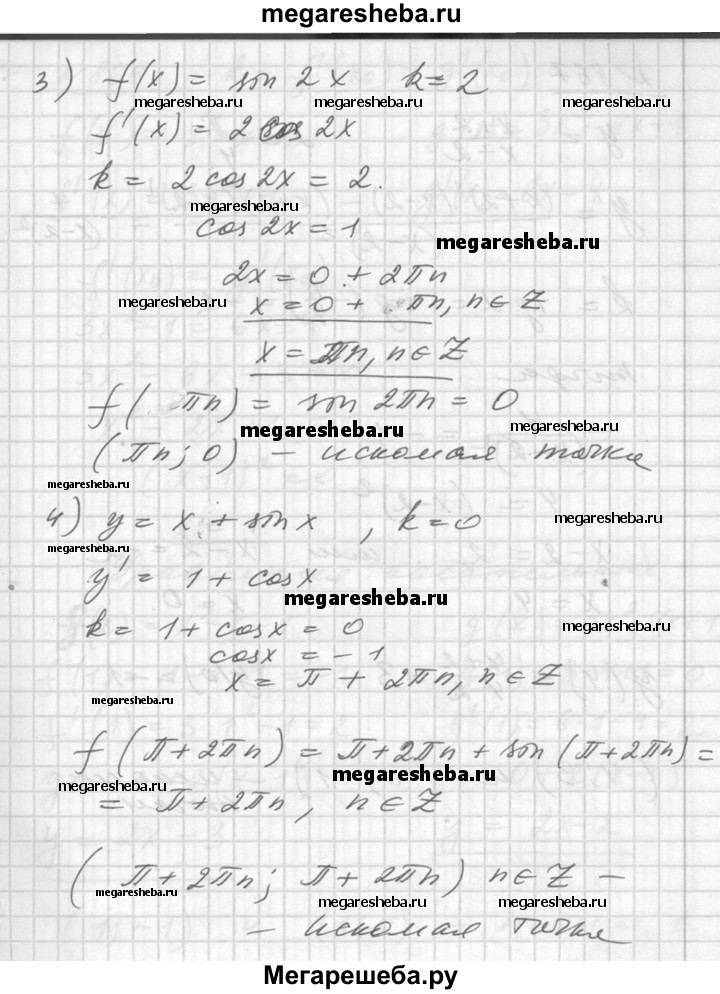 megaresheba.ru
3) f(x) = sin 2x k=2
megaresheba.ru megaresheba.ru megaresheba.ru
f'(x) = 2 cos 2x
k = 2 cos 2x = 2.
megaresheba.ru
cos 2x = 1
megaresheba.ru
2x = 0 + 2πn
megaresheba.ru x = 0 + πn, n∈Z
x = πn, n∈Z
f( πn) = sin 2πn = 0
megaresheba.ru megaresheba.ru
(πn; 0) – искомая точка
megaresheba.ru
4) y = x + sin x , k=0
megaresheba.ru
megaresheba.ru
y' = 1 + cosx
megaresheba.ru
k = 1 + cosx = 0
megaresheba.ru
cosx = -1
x = π + 2πn, n∈Z
megaresheba.ru
f(π+2πn) = π+2πn + sin(π+2πn) =
megaresheba.ru
megaresheba.ru
= π+2πn, n∈Z
(π+2πn; π+2πn) n∈Z –
megaresheba.ru megaresheba.ru megaresheba.ru
– искомая точка
Мегарешеба.ру